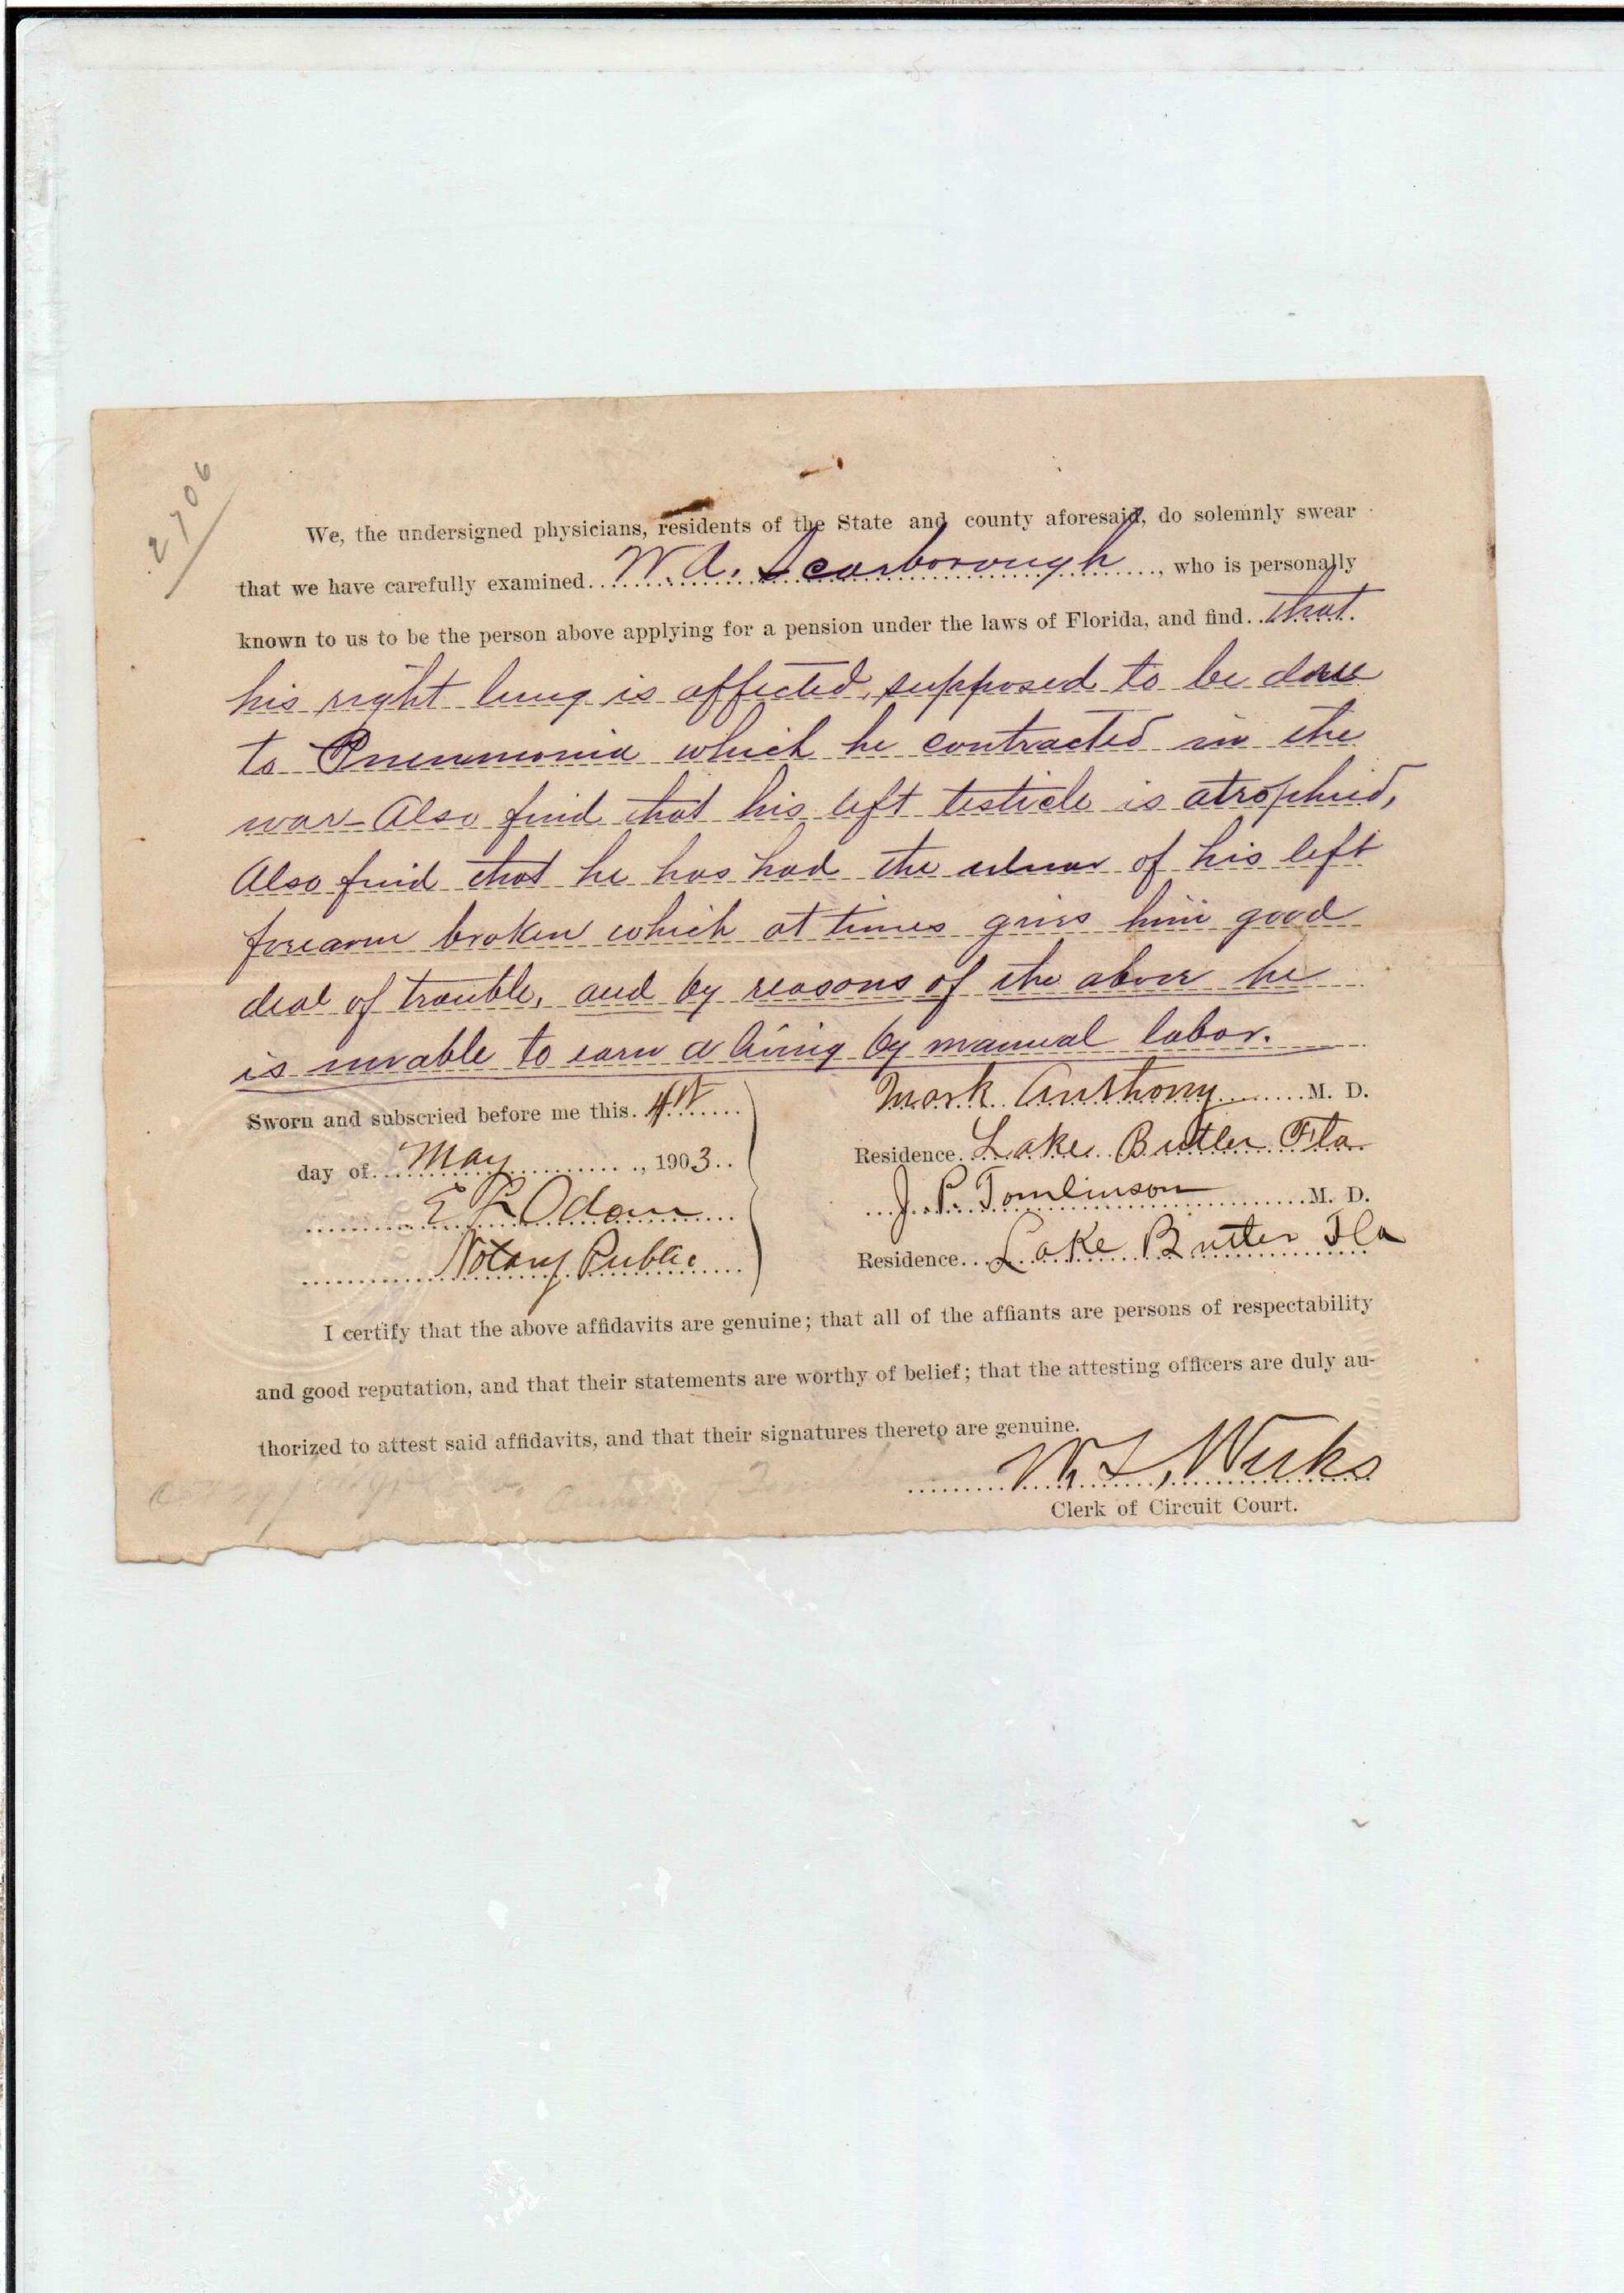 2706
We, the undersigned physicians, residents of the State and county aforesaid, do solemnly swear
that we have carefully examined W. A. Scarborough, who is personally
known to us to be the person above applying for a pension under the laws of Florida, and find that
his right lung is affected, supposed to be due
to Pneumonia which he contracted in the
war - Also find that his left testicle is atrophied,
Also find that he has had the ulnar of his left
forearm broken which at times gives him good
deal of trouble, and by reasons of the above he
is unable to earn a living by manual labor.
Sworn and subscried before me this 4th
day of May, 1903
E L Odom
Notary Public
Mark Anthony M. D.
Residence Lake Butler Fla
J. P. Tomlinson M. D.
Residence Lake Butler Fla
I certify that the above affidavits are genuine; that all of the affiants are persons of respectability
and good reputation, and that their statements are worthy of belief; that the attesting officers are duly au-
thorized to attest said affidavits, and that their signatures thereto are genuine.
Clerk of Circuit Court.